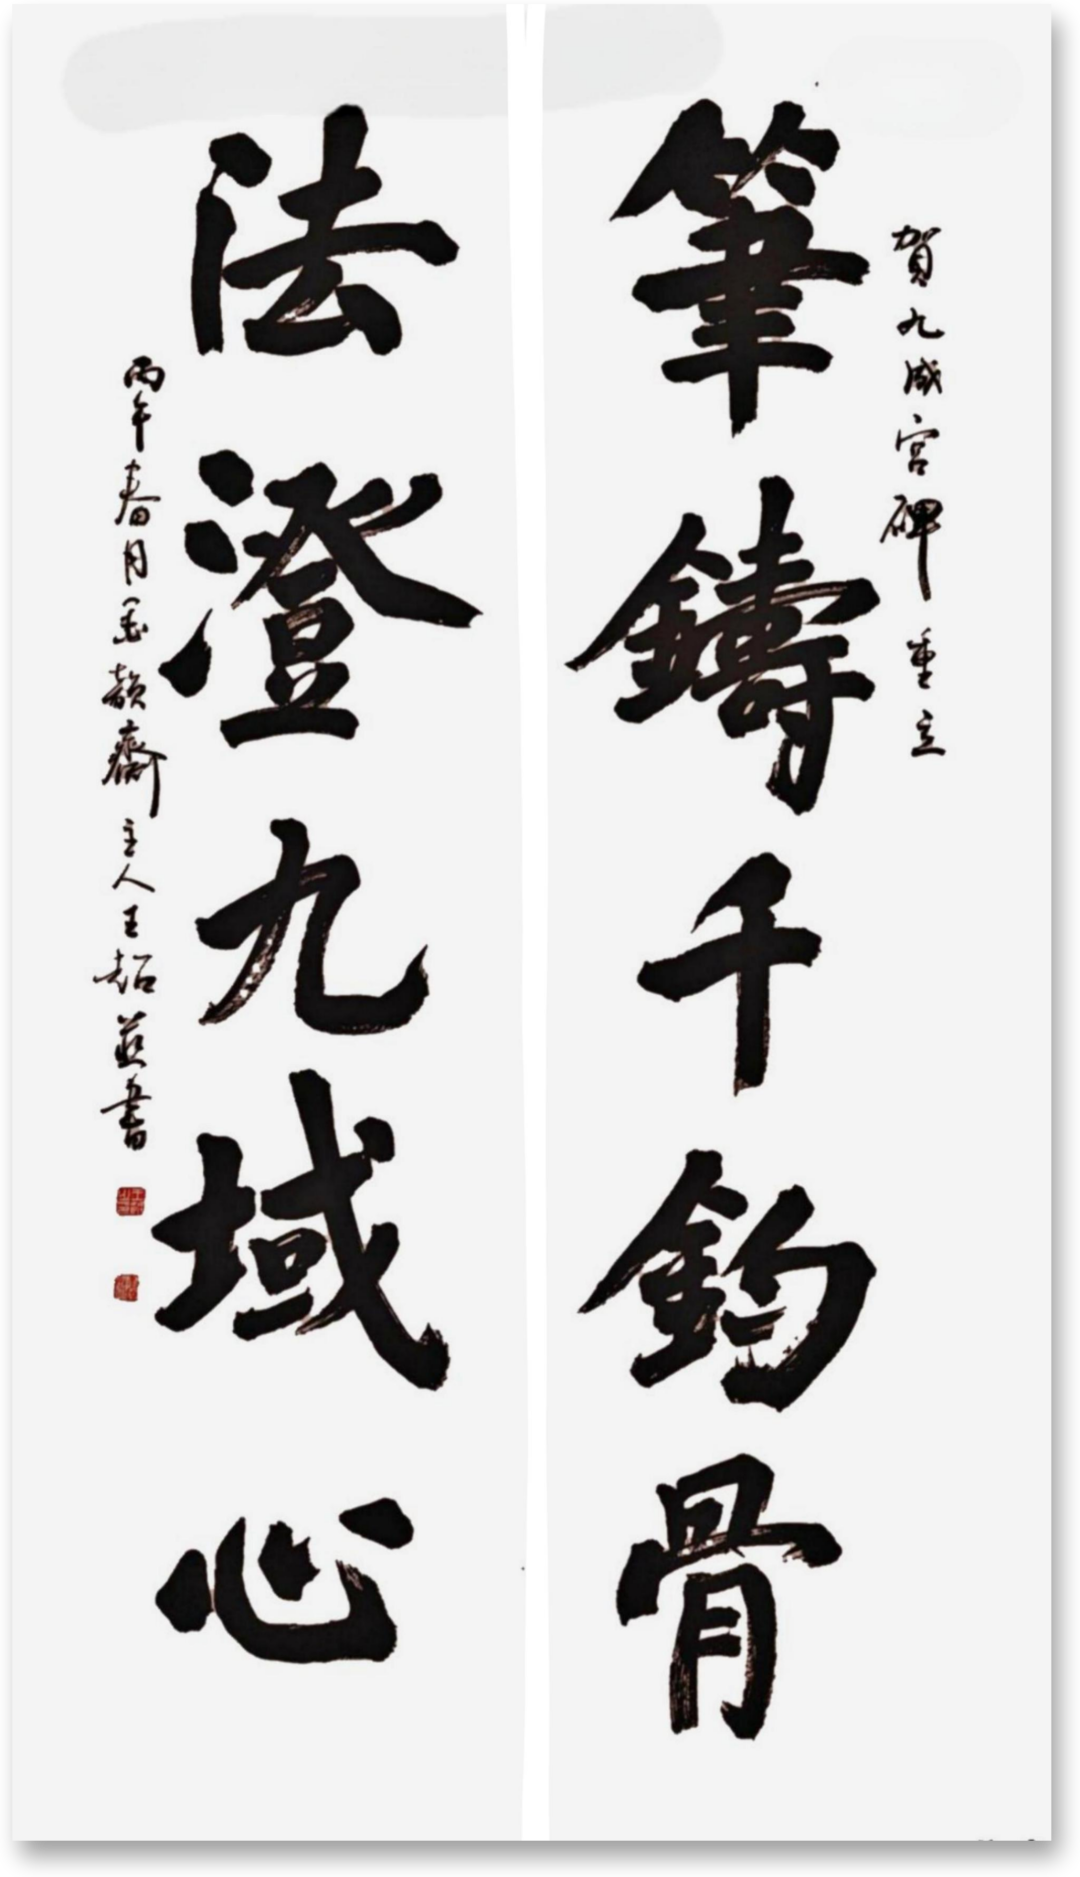 賀九成宮碑重立
筆鑄千鈞骨
法澄九域心
丙午春月墨韻齋主人王超英書